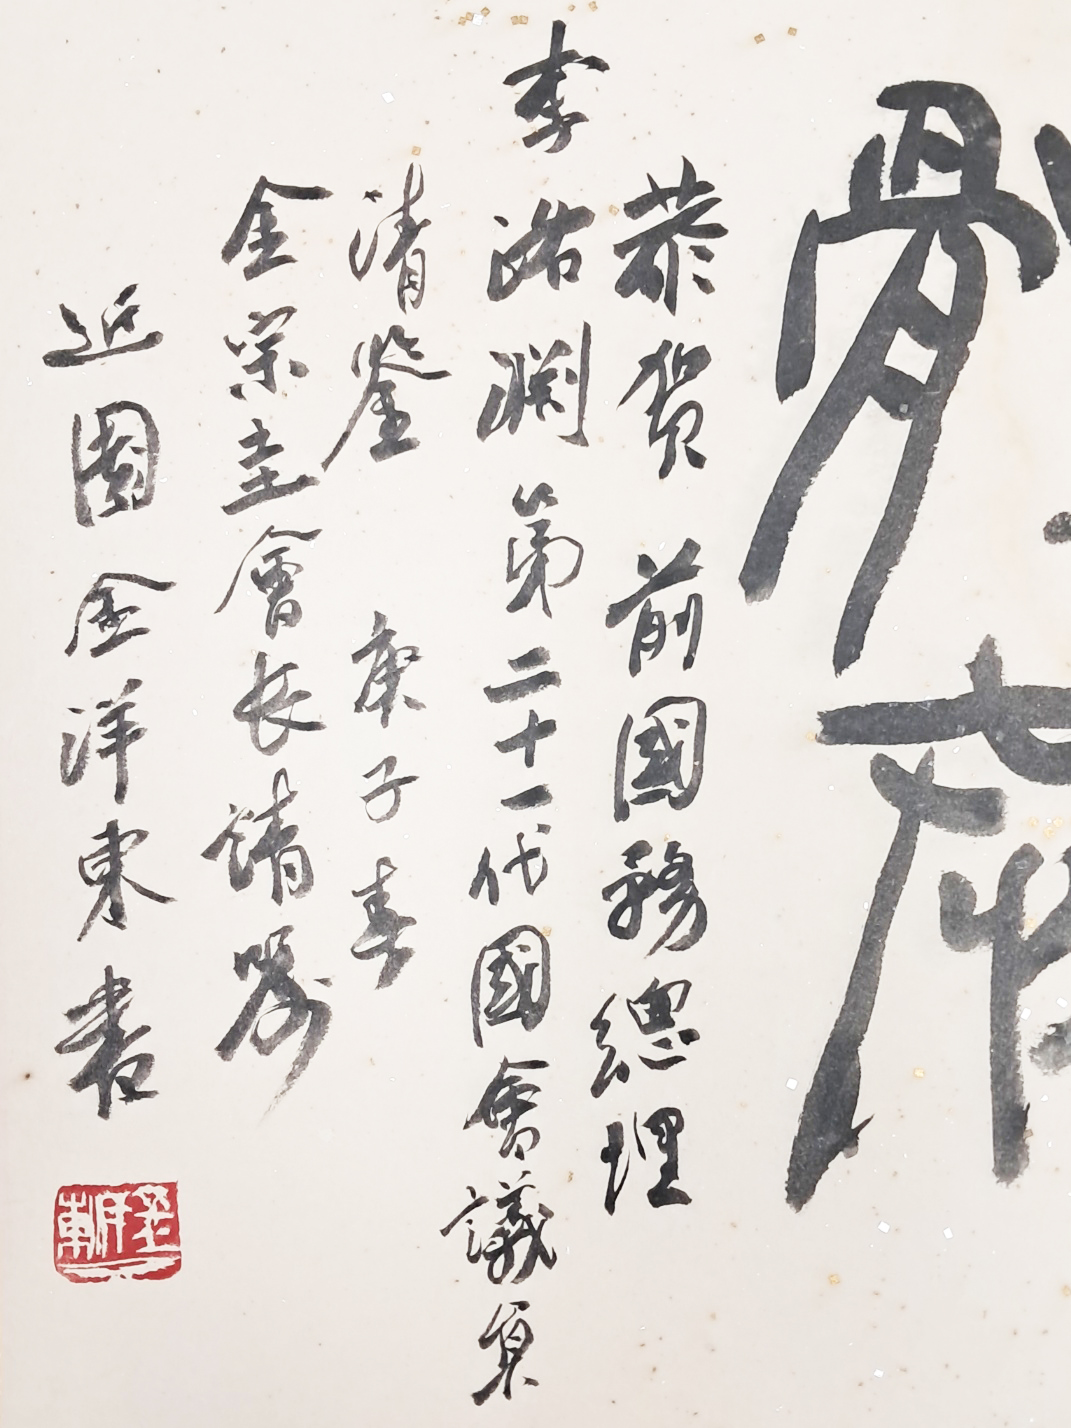 恭賀 前國務總理
李洛淵第二十一代國會議員
清鑒 庚子春
金宗圭會長請囑
近園金洋東書